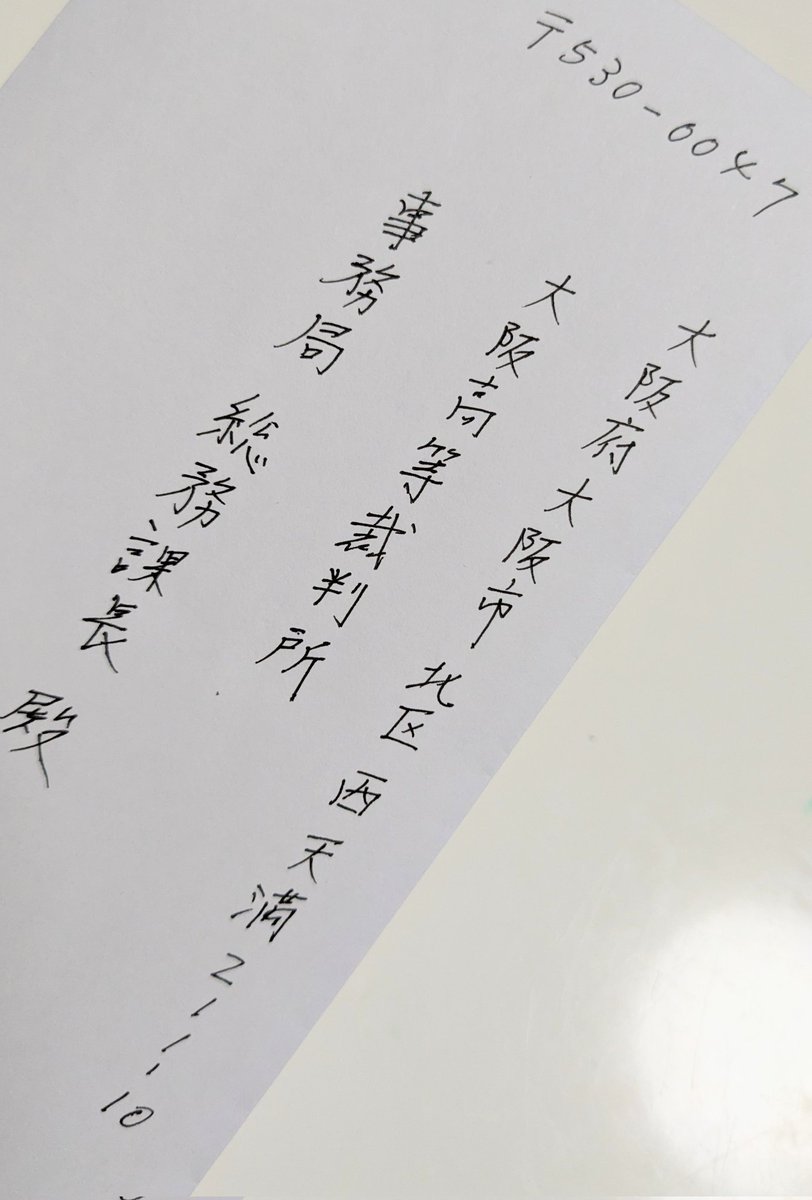 〒530-0047
大阪府大阪市北区西天満2-1-10
大阪高等裁判所
事務局 総務課長 殿